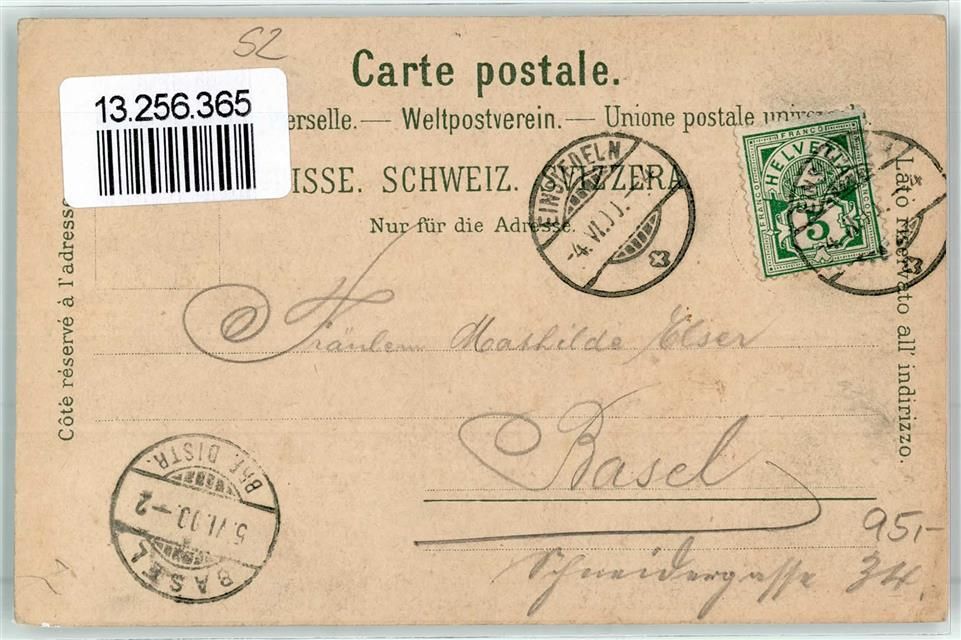 S2
Carte postale.
13.256.365
erselle. — Weltpostverein. — Unione postale universale.
ISSE. SCHWEIZ. SVIZZERA
Nur für die Adresse.
EINSIEDELN
-4.VI.00.-
FRANCO
HELVETIA
FRANCO
5
Côté réservé à l'adresse
Lato riservato all' indirizzo.
Fräulein Mathilde Elser
Basel
BRF. DISTR.
5.VI.00.-2
BASEL
95,-
Schneidergasse 34.